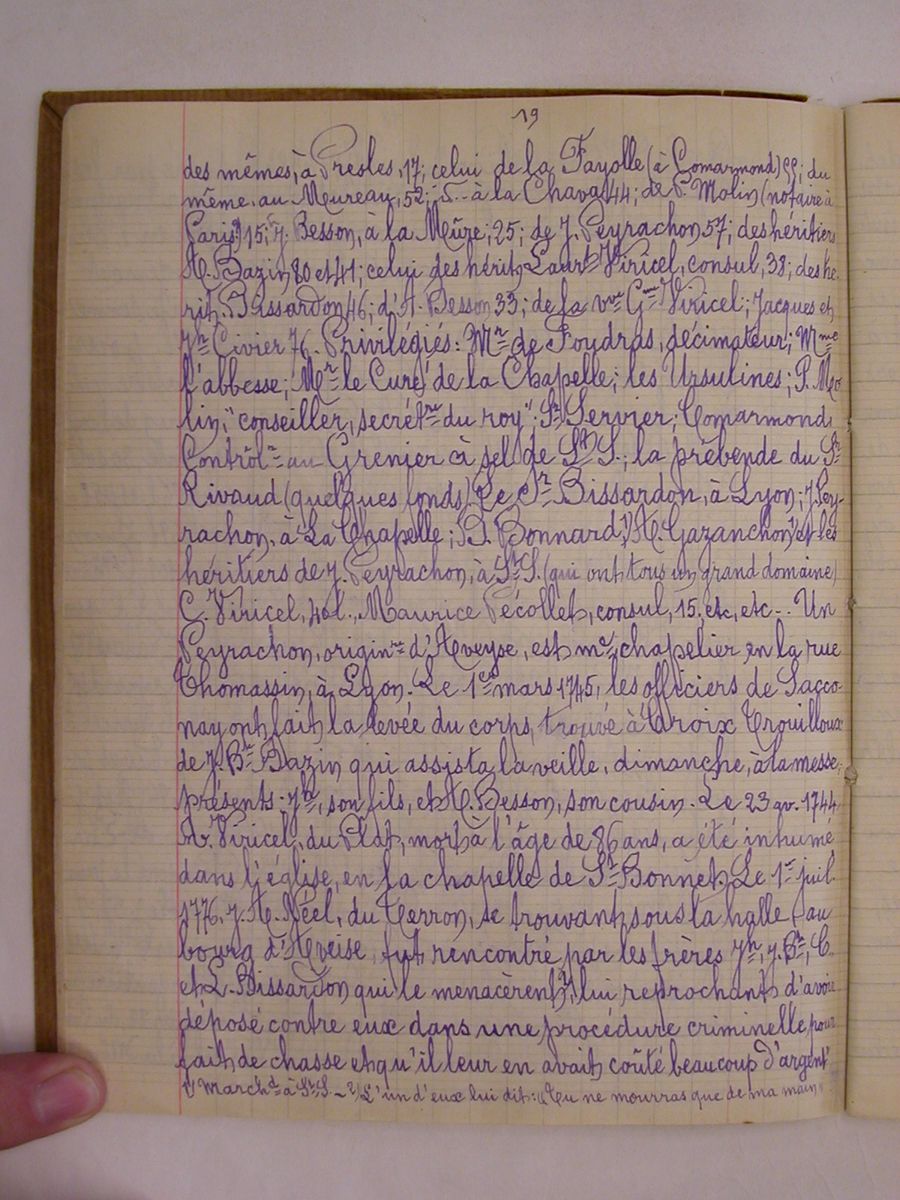 19
des mêmes, à Presles, 17; celui de la Fayolle (à Comarmond) 99; du
même, au Meureau, 52; à la Chaval 44; de P. Molin (notaire à
Paris) 15; J. Besson, à la Mûre, 25; de J. Peyrachon 57; des héritiers
A. Bazin 80 et 41; celui des hérit. Laurt Viricel, consul, 38; des hé-
rit. Bissardon 46; d'A. Besson 33; de la vve Gme Viricel; Jacques et
Jn Civier 76. Privilégiés: Mr de Foudras, décimateur; Mme
l'abbesse; Mr le Curé de la Chapelle; les Ursulines; P. Mo
lin, "conseiller, secrétre du roy"; Sr Servier, Comarmond,
Contrôlr au Grenier à sel de St S.; la prébende du Sr
Rivaud (quelques fonds). Le Sr Bissardon, à Lyon; J. Pey-
rachon, à La Chapelle; B. Bonnard, A. Gazanchon 1) et les
héritiers de J. Peyrachon, à St S. (qui ont tous un grand domaine)
C. Viricel, 40l., Maurice Pécollet, consul, 15, etc, etc.. Un
Peyrachon, originre d'Aveyse, est md chapelier en la rue
Thomassin, à Lyon. Le 1er mars 1745, les officiers de Sacco-
nay ont fait la levée du corps, trouvé à Croix Trouilloux
de J. Bte Bazin qui assista, la veille, dimanche, à la messe;
présents: Jn, son fils, et A. Besson, son cousin. Le 23 av. 1744
Viricel, du Plat, mort à l'âge de 86 ans, a été inhumé
dans l'église, en la chapelle de St Bonnet. Le 1er juil.
1776, J. A. Néel, du Terron, se trouvant sous la halle, au
bourg d'Aveise, fut rencontré par les frères Jn, J. Bte, C.
et L. Bissardon qui le menacèrent 2), lui reprochant d'avoir
déposé contre eux dans une procédure criminelle, pour
fait de chasse et qu'il leur en avait coûté beaucoup d'argent
1) Marchd à St S. – 2) L'un d'eux lui dit: "Tu ne mourras que de ma main".